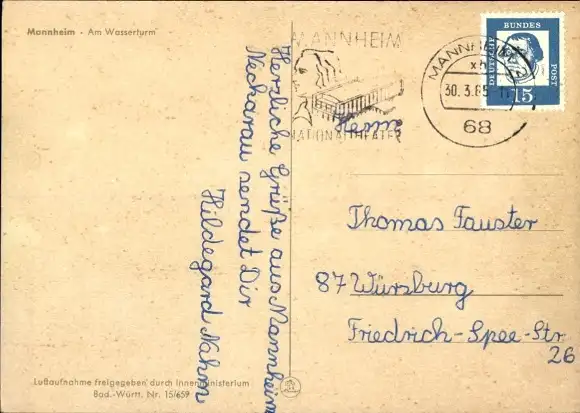 Mannheim - Am Wasserturm
Herzliche Grüße aus Mannheim
Neckarau sendet Dir
Hildegard Nahm
Luftaufnahme freigegeben durch Innenministerium
Bad.-Württ. Nr. 15/659
MANNHEIM
NATIONALTHEATER
MANNHEIM
30.3.65
68
DEUTSCHE
BUNDES
POST
15
Herrn
Thomas Fauster
87 Würzburg
Friedrich-Spee-Str.
26